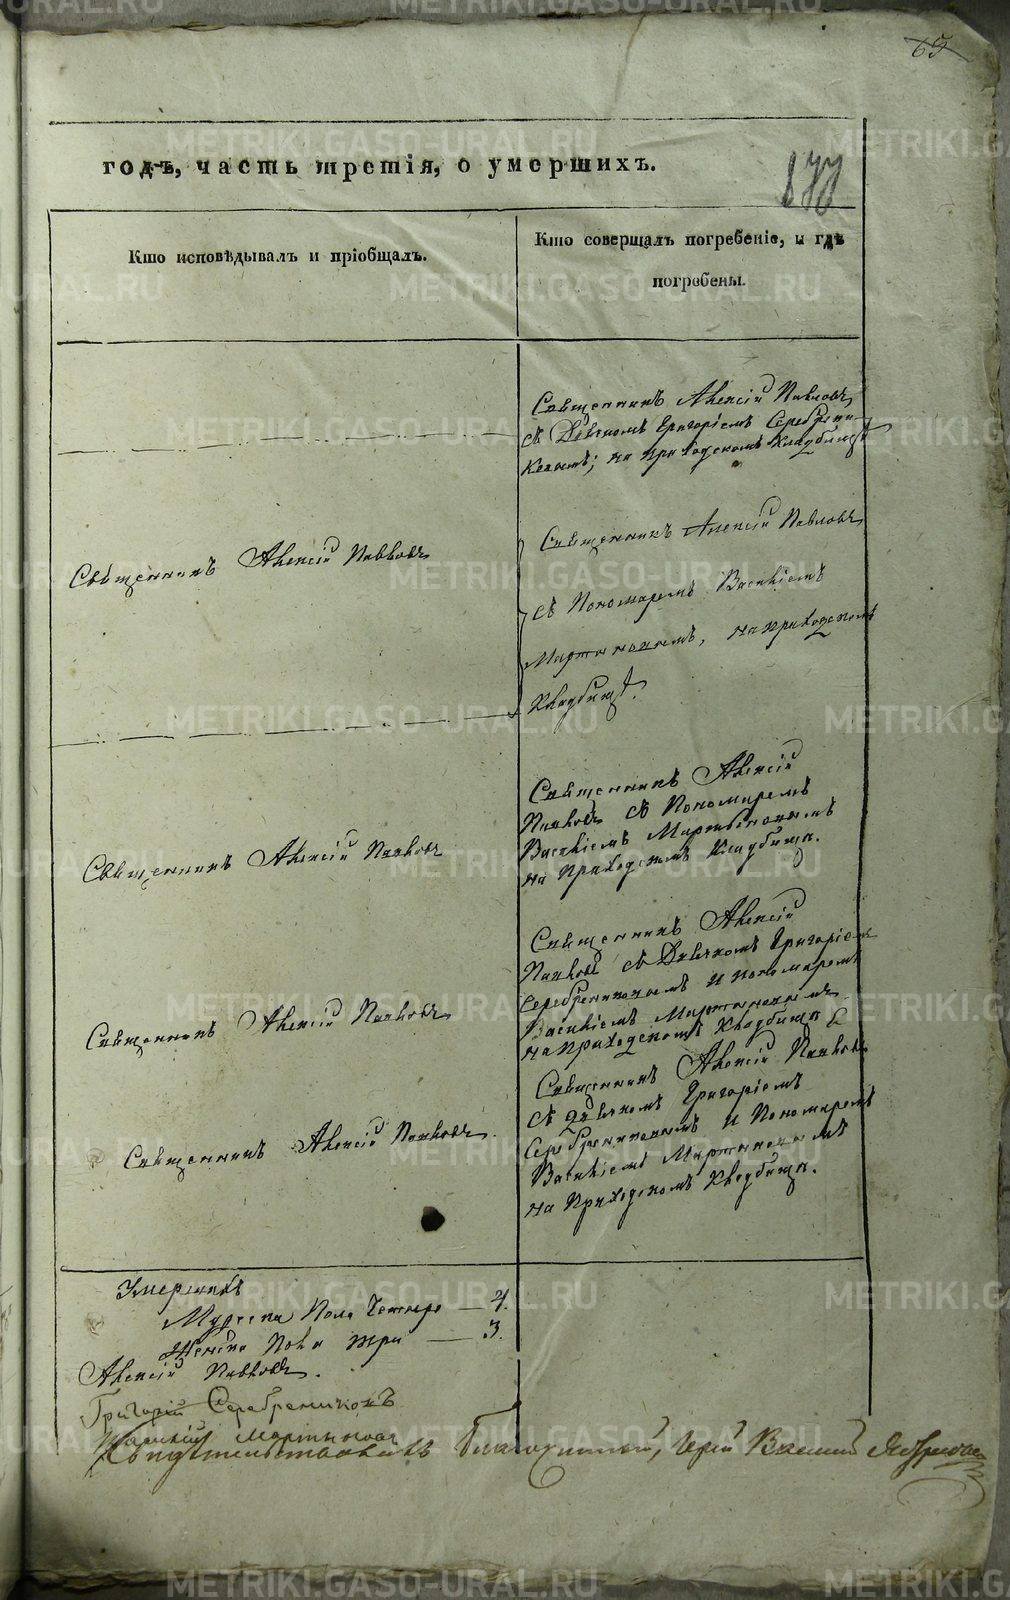 65
годъ, часть третія, о умершихъ.
177
Кто исповѣдывалъ и пріобщалъ.
Кто совершалъ погребеніе, и гдѣ
погребены.
Священникъ Алексій Павловъ
съ Дьячкомъ Григоріемъ Серебрени-
ковымъ; на приходскомъ кладбищѣ
Священникъ Алексій Павловъ
Священникъ Алексій Павловъ
съ Пономаремъ Василіемъ
Мартыновымъ, на приходскомъ
Кладбищѣ.
Священникъ Алексій Павловъ
Священникъ Алексій
Павловъ съ Пономаремъ
Василіемъ Мартыновымъ
на Приходскомъ Кладбищѣ.
Священникъ Алексій Павловъ
Священникъ Алексій
Павловъ съ Дьячкомъ Григоріемъ
Серебрениковымъ и пономаремъ
Василіемъ Мартыновымъ
на приходскомъ Кладбищѣ
Священникъ Алексій Павловъ.
Священникъ Алексій Павловъ
съ Дьячкомъ Григоріемъ
Серебрениковымъ и Пономаремъ
Василіемъ Мартыновымъ
на Приходскомъ Кладбищѣ.
Умершихъ
Мужеска Пола Четыре — 4.
Женска Пола три — 3.
Алексій Павловъ.
Григорій Серебрениковъ
Василій Мартыновъ
Благочинный, Іерей Василій
METRIKI.GASO-URAL.RU